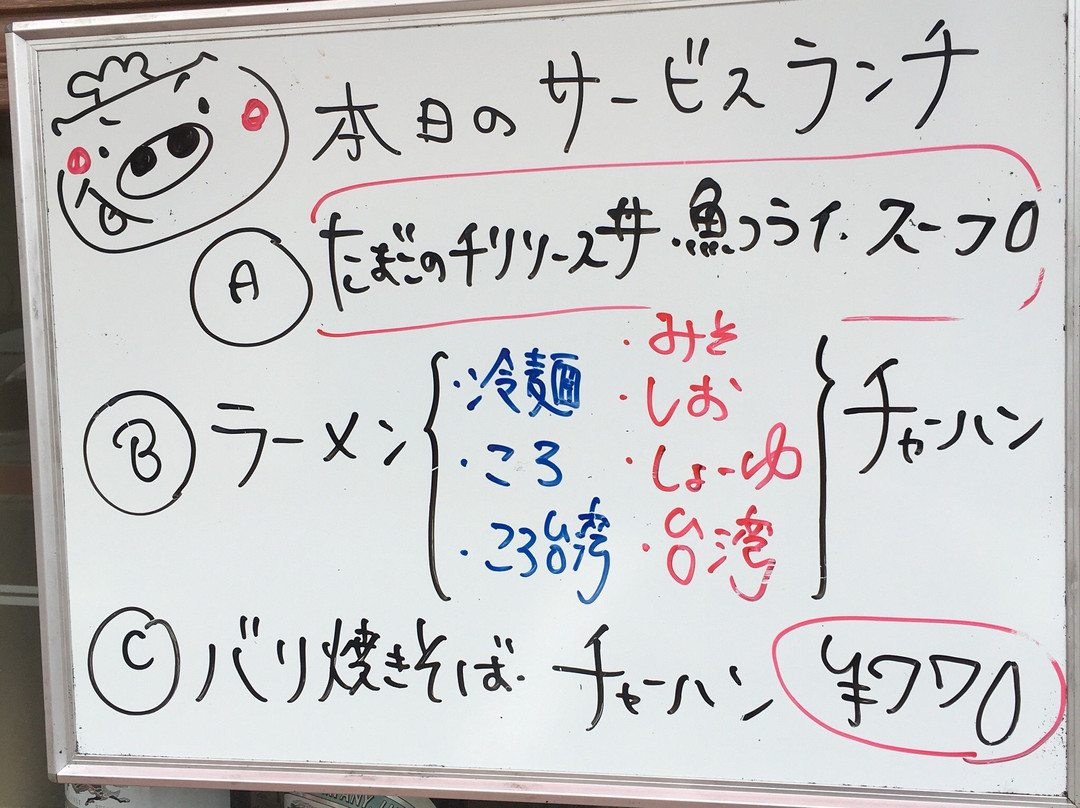 本日のサービスランチ
A たまごのチリソース丼.魚フライ.スープ
B ラーメン
・冷麺
・ころ
・ころ台湾
・みそ
・しお
・しょーゆ
・台湾
チャーハン
C バリ焼きそば. チャーハン ¥770